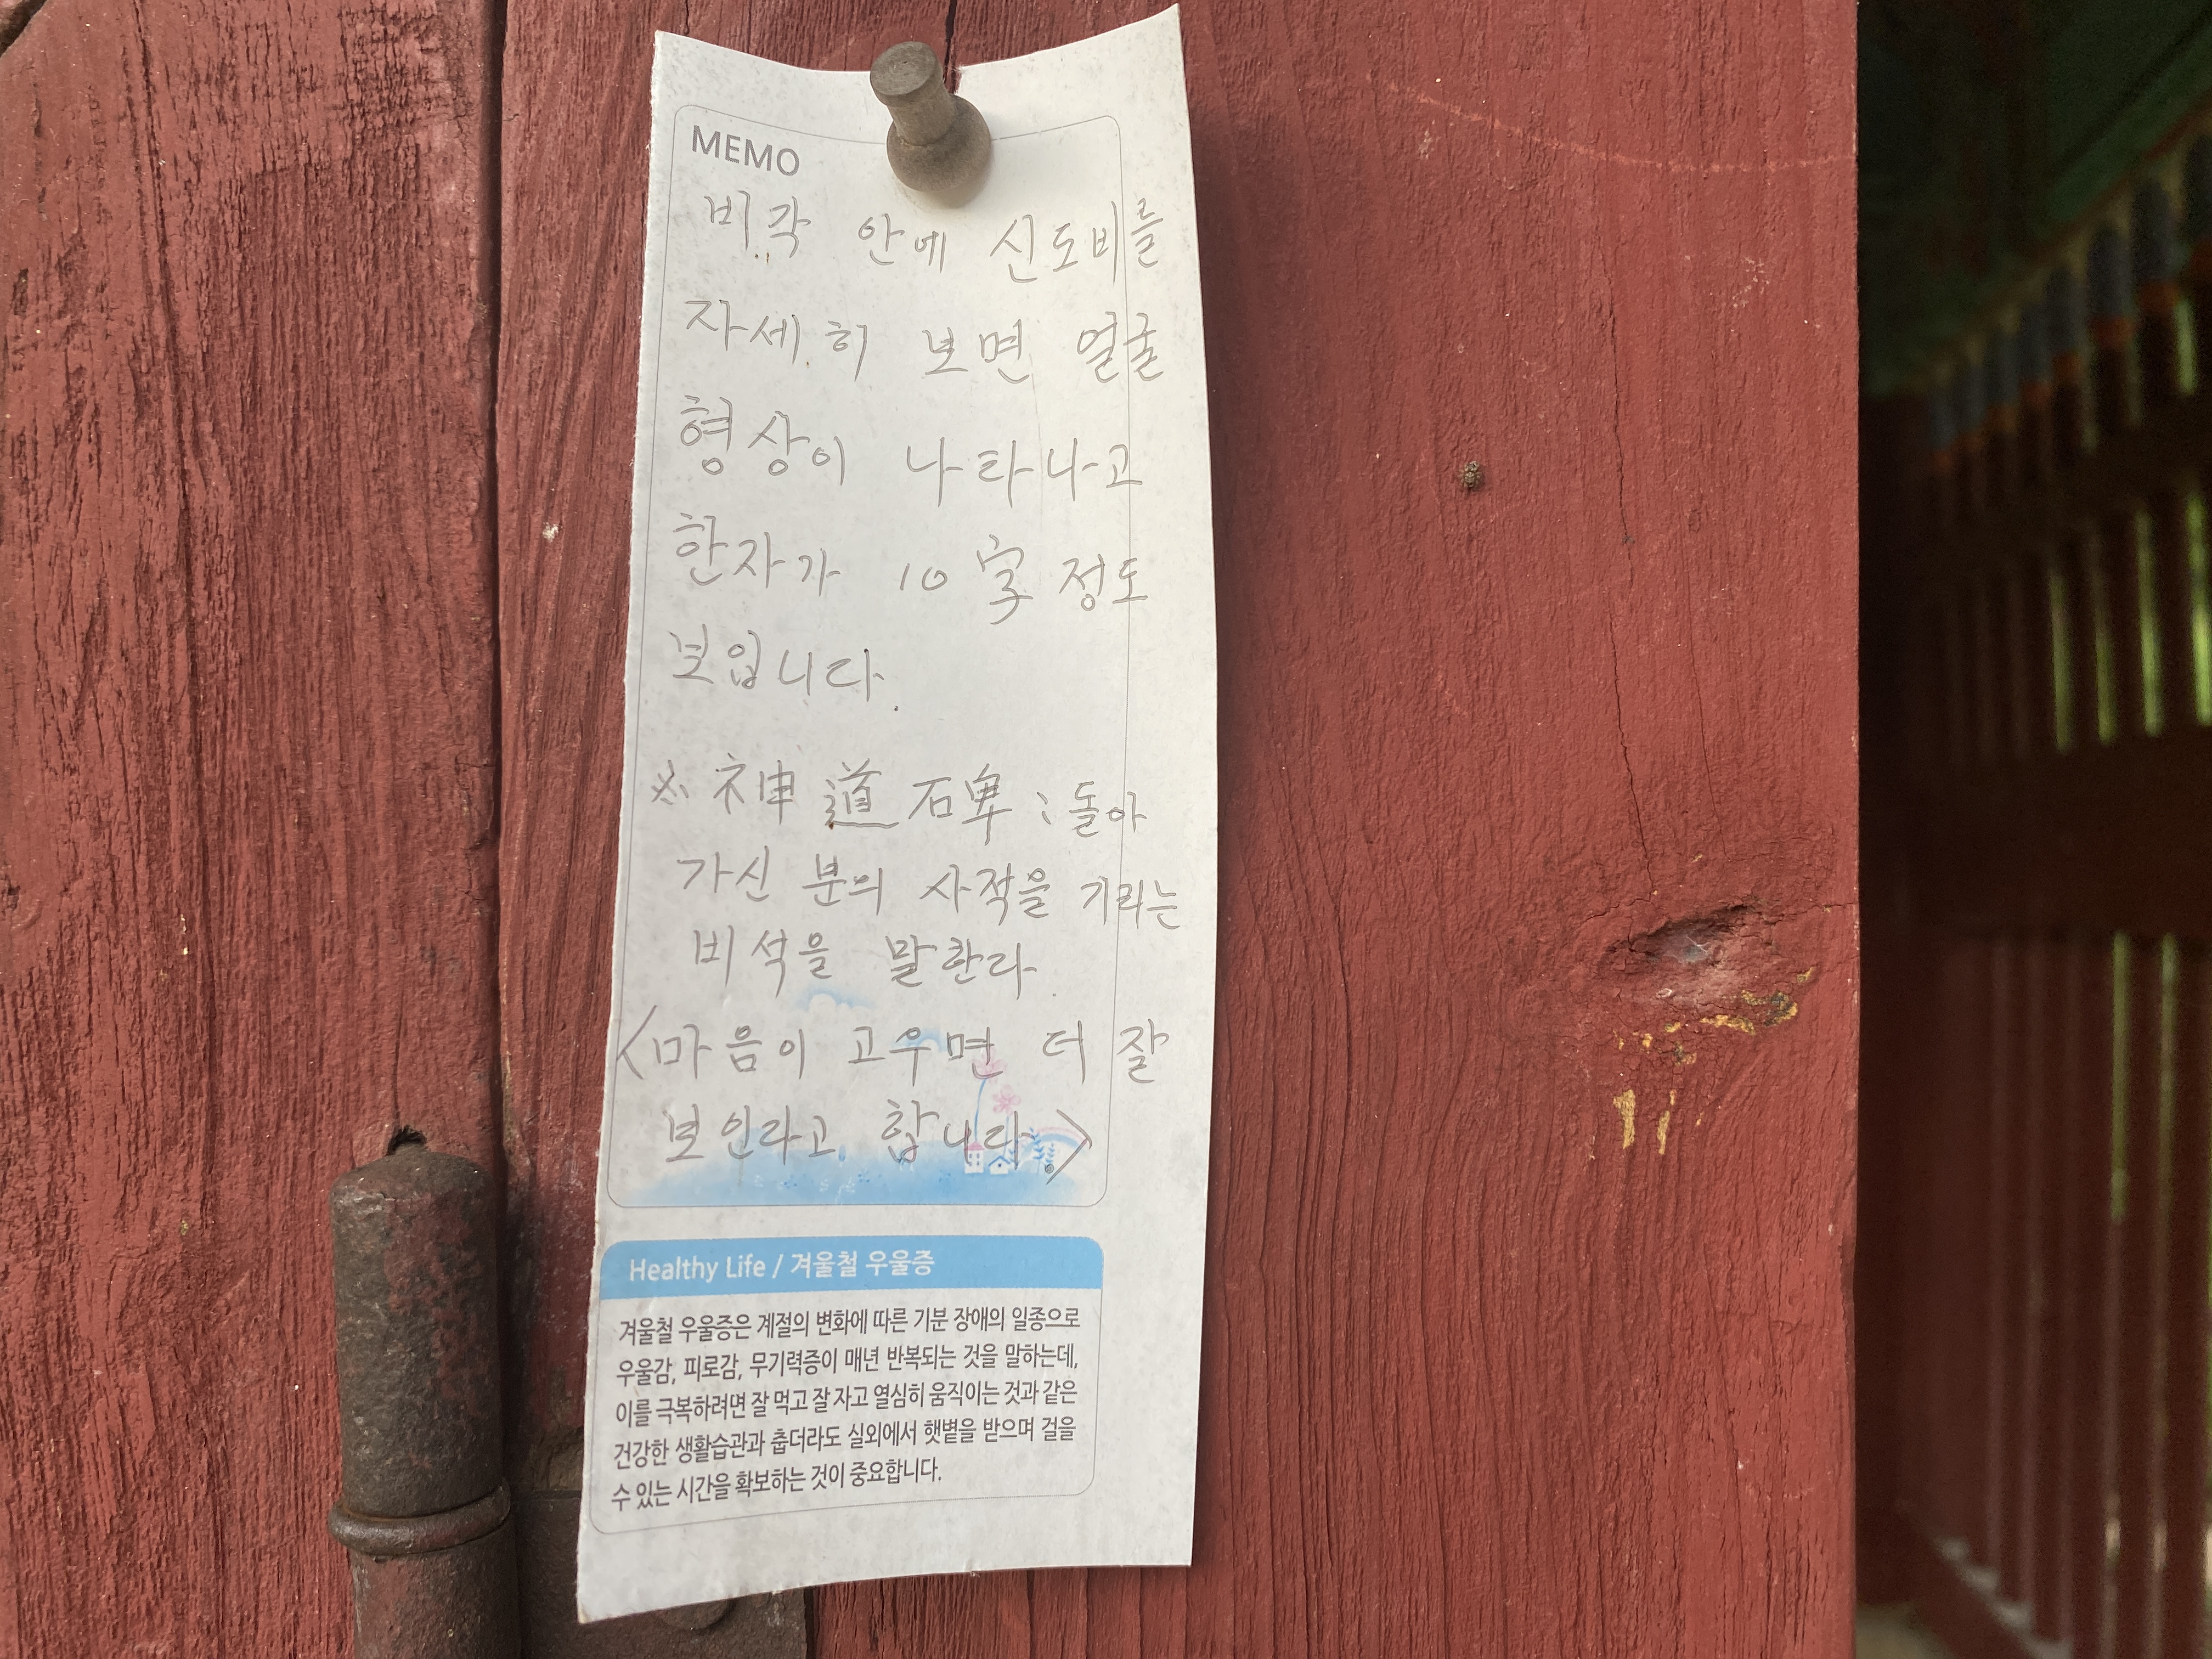 MEMO
비각 안에 신도비를
자세히 보면 얼굴
형상이 나타나고
한자가 10字 정도
보입니다.
※ 神道碑 : 돌아
가신 분의 사적을 기리는
비석을 말한다.
<마음이 고우면 더 잘
보인다고 합니다.>
Healthy Life / 겨울철 우울증
겨울철 우울증은 계절의 변화에 따른 기분 장애의 일종으로
우울감, 피로감, 무기력증이 매년 반복되는 것을 말하는데,
이를 극복하려면 잘 먹고 잘 자고 열심히 움직이는 것과 같은
건강한 생활습관과 춥더라도 실외에서 햇볕을 받으며 걸을
수 있는 시간을 확보하는 것이 중요합니다.